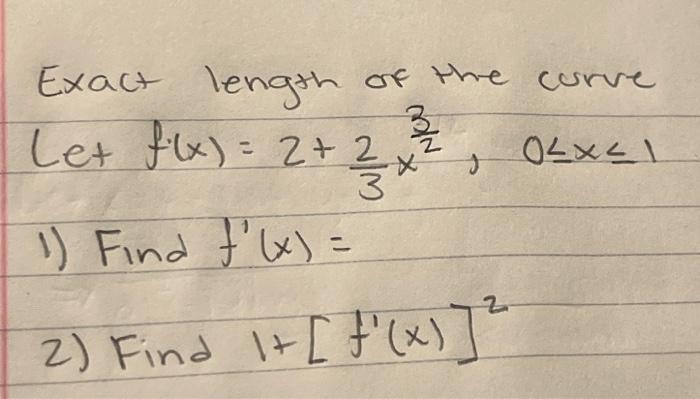 Exact length of the curve
Let f(x) = 2 + 2/3 x^3/2 , 0≤x≤1
1) Find f'(x) =
2) Find 1+[f'(x)]^2